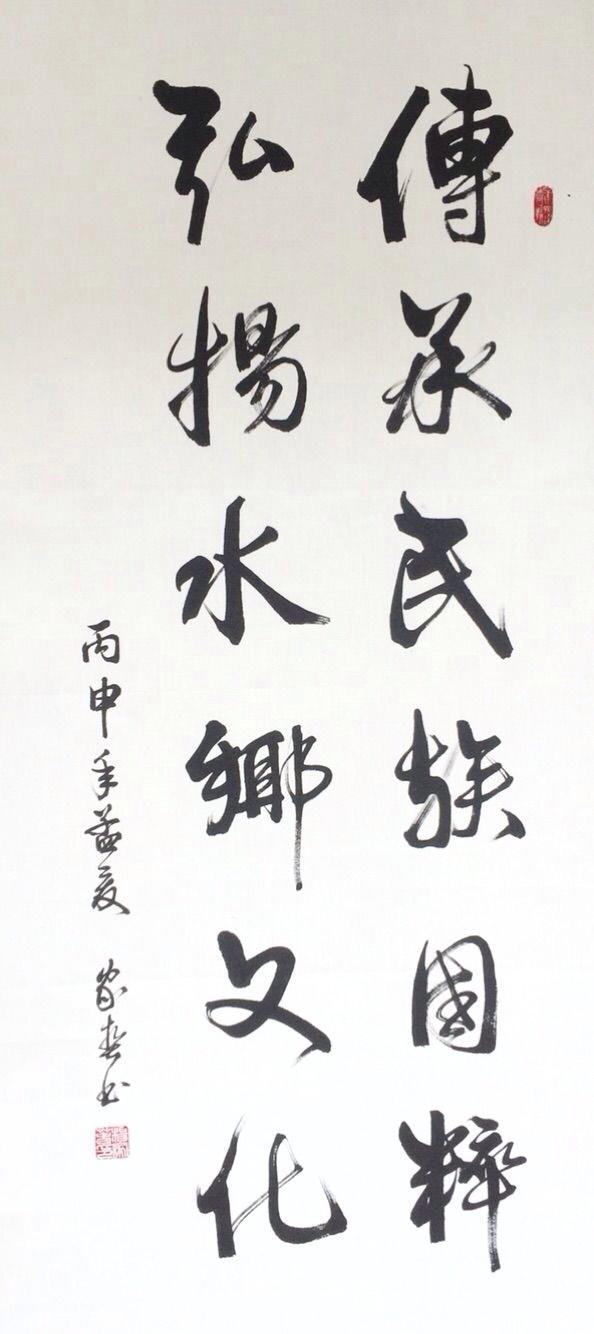 傳承民族國粹
弘揚水鄉文化
丙申年孟夏 家春書